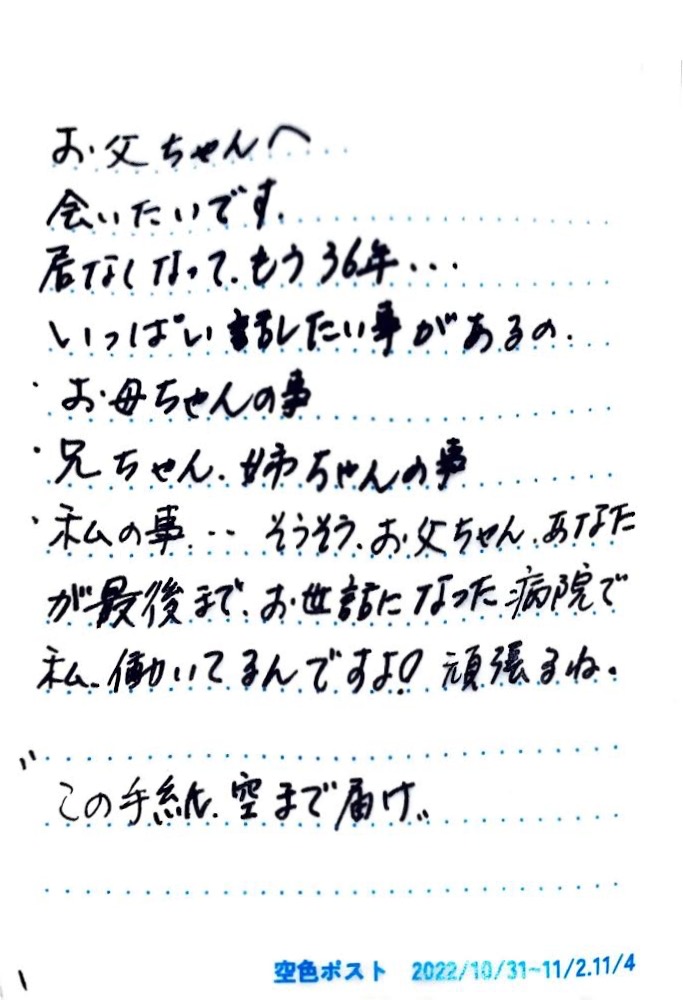 お父ちゃんへ
会いたいです.
居なくなって、もう36年...
いっぱい話したい事があるの.
・お母ちゃんの事
・兄ちゃん、姉ちゃんの事
・私の事... そうそう、お父ちゃん、あなた
が最後まで、お世話になった病院で
私、働いてるんですよ! 頑張るね。
"この手紙、空まで届け"
空色ポスト 2022/10/31~11/2.11/4